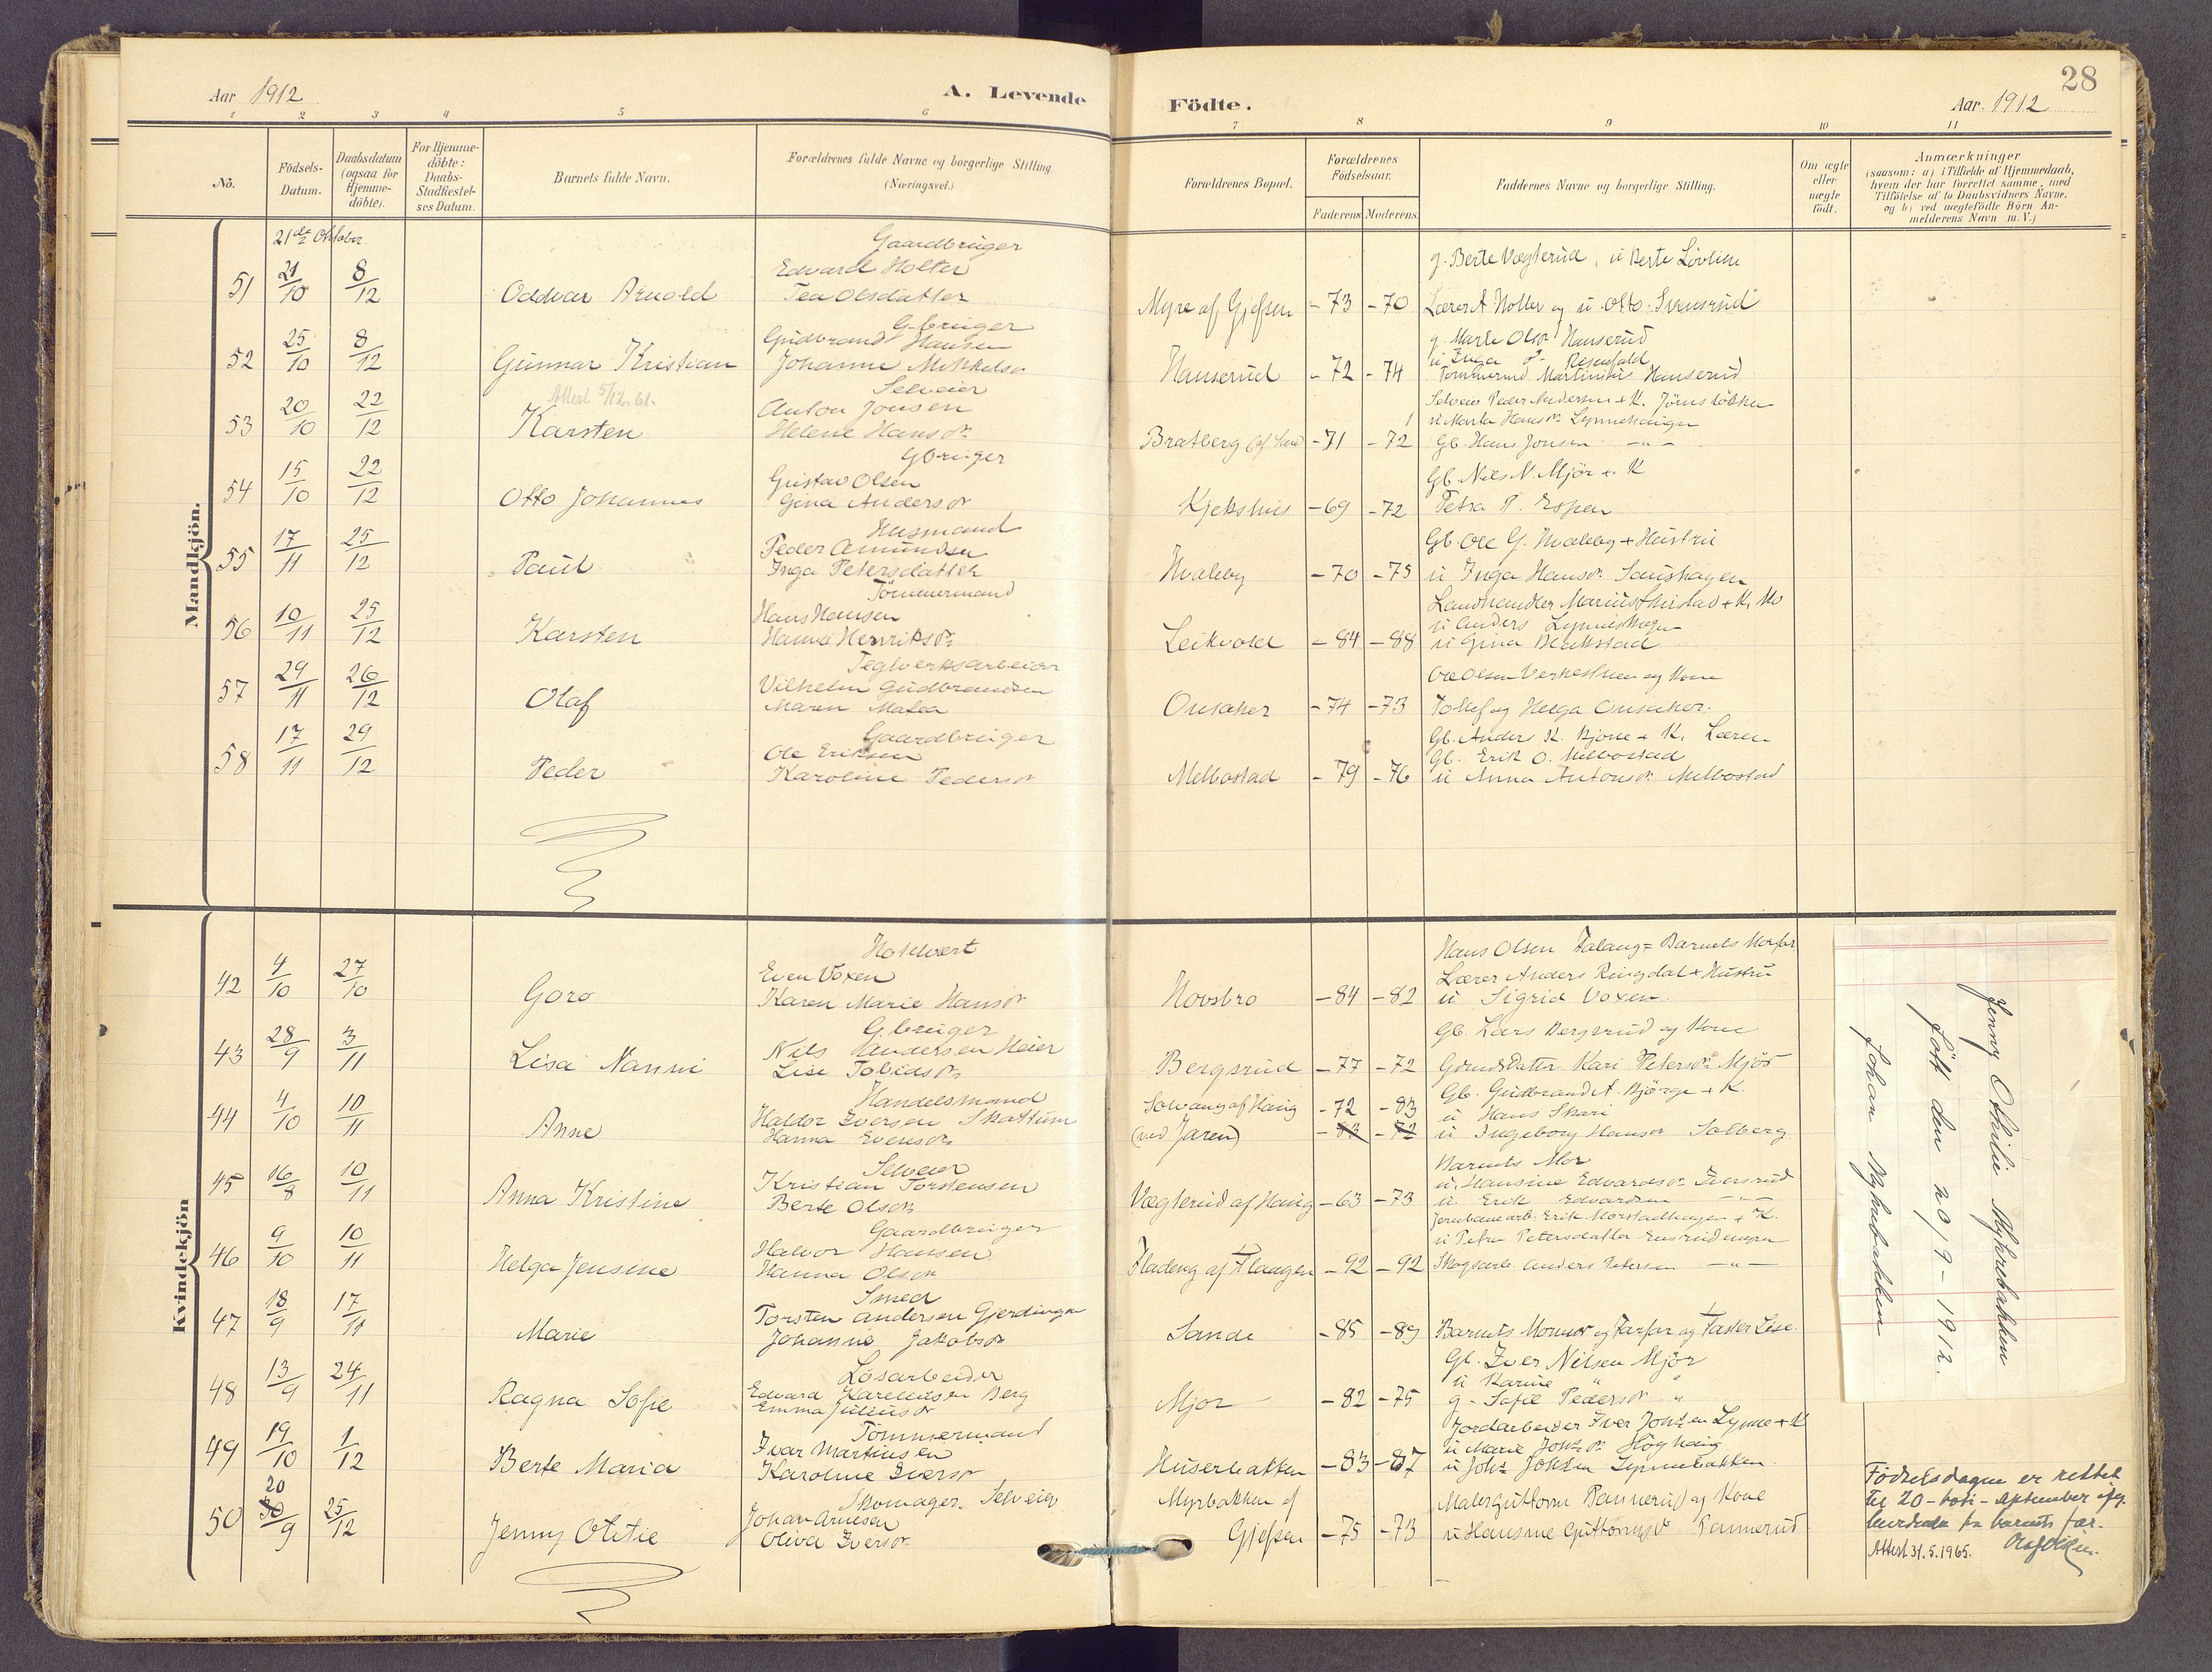 28
Aar 1912
A. Levende
Födte.
Aar 1912
1 2 3 4 5 6 7 8 9 10 11
No.
Födsels-
Datum.
Daabsdatum
(ogsaa for
Hjemme-
döbte).
For Hjemme-
döbte:
Daabs-
Stadfæstel-
ses Datum.
Barnets fulde Navn.
Forældrenes fulde Navne og borgerlige Stilling
(Næringsvei.)
Forældrenes Bopæl.
Forældrenes
Födselsaar.
Faderens Moderens
Faddernes Navne og borgerlige Stilling.
Om ægte
eller
uægte
födt.
Anmærkninger
(saasom: a) i Tilfælde af Hjemmedaab,
hvem der har forrettet samme, med
Tilföielse af to Daabsvidners Navne.
og b) ved uægtefödte Börn An-
melderens Navn m. V.)
Mandkjön.
21de Oktober.
Gaardbruger
g. Berte Vægterud, u Berte Lövlien
51 21/10 8/12 Oddvar Arnold
Edvard Holter
Tea Olsdatter
Myre af Gjefsen -73 -70
Lærer A Holter og u. Otto Svensrud
Gbruger
52 25/10 8/12 Gunnar Kristian
Gudbrand Hansen
Johanne Mikkelsdr
Hanserud -72 -74
g. Marte Olsdr Hanserud
u Inga
Tømmermd Martinius Hanserud
Attest 5/12.61.
Selveier
53 20/10 22/12 Karsten
Anton Jonsen
Helene Hansdr
Bratberg -71 -72
Selveier Peder Andersen + K.
u Marta Hansdr Lynnehaugen
Gb. Hans Jonsen -"-
Gbruger
54 15/10 22/12 Otto Johannes
Gustav Olsen
Gina Andersdr
Kjekshus -69 -72
Gb. Nils N. Mjör + K
Petra P. Espen
Husmand
55 17/11 25/12 Paul
Peder Amundsen
Inga Petersdatter
Hvaleby -70 -75
Gb. Ole G. Hvaleby + Hustru
u Inga Hansdr
Tömmermand
56 10/11 25/12 Karsten
Hans Hansen
Hanna Henriksdr
Leikvold -84 -88
Landhandler Marius + K, Mo
u Anders
u Gina
Teglverksarbeider
57 29/11 26/12 Olaf
Vilhelm Gudbrandsen
Maren Matea
Onsaker -74 -73
Ole Olsen og Kone
Tollef og Helga Onsaker.
Gaardbruger
58 17/11 29/12 Peder
Ole Eriksen
Karoline Pedersdr
Melbostad -79 -76
Gb. Anders K. Bjone + K. Læren
Gb. Erik O. Melbostad
u Anna Antonsdr Melbostad
Kvindekjön
Hotelvert
42 4/10 27/10 Goro
Even Voxen
Karen Marie Hansdr
Hovsbro -84 -82
Hans Olsen Falang = Barnets Morfar
Lærer Anders Ringdal + Hustru
u Sigrid Voxen.
Gbruger
43 28/9 3/11 Lisa Nanni
Nils Andersen Heier
Lise Tobiasdr
Bergsrud -77 -72
Gb. Lars Bergsrud og Kone
Gaardsdatter Kari Petersdr Mjör
Handelsmand
44 4/10 10/11 Anne
Haldor Iversen Skattum
Hanna Evensdr
Solvang af Haug -72 -83
(ved Jaren) -83 -72
Gb. Gudbrand A. Björge + K.
u Hans Skari
u Ingeborg Hansdr Solberg
Selveier
45 16/8 10/11 Anna Kristine
Kristian Torstensen
Berte Olsdr
Vægterud af Haug -63 -73
Barnets Mor
u. Hansine Edvardsdr Iversrud
u. Erik Edvardsen -"-
Gaardbruger
46 9/10 10/11 Helga Jensine
Halvor Hansen
Hanna Olsdr
Fladeng af Flaagen -92 -92
Jernbanearb. Erik Morstadhagen + K.
u Petra Petersdatter
Skogsarb. Anders Petersen -"-
Smed
47 18/9 17/11 Marie
Torsten Andersen Gjerdingen
Johanne Jakobsdr
Sande -85 -89
Barnets Mormor og Farfar og Faster Lise.
Løsarbeider
48 13/9 24/11 Ragna Sofie
Edvard Kareliussen Berg
Emma Juliusdr
Mjör -82 -75
Gb. Iver Nilsen Mjör
u Karine "
g. Sofie Pedersdr "
Tömmermand
49 19/10 1/12 Berte Maria
Ivar Martinsen
Karoline Iversdr
Huserbakken -83 -87
Jordarbeider Iver Johsen Lynne + K
u Marie Johsdr Höghaug
u Johs Johsen Lynnebakken.
Skomager. Selveier
50 20 30/9 25/12 Jenny Otilie
Johan Arnesen
Oliva Iversdr
Myrbakken af
Gjefsen -75 -73
Maler Guttorm Rannerud og Kone
u Hansine Guttormsdr Rannerud
Födselsdagen er rettet
til 20-toti-september
barnets far.
Attest 31.5.1965.
Jenny Othilie
fött den 20/9-1912.
Johan